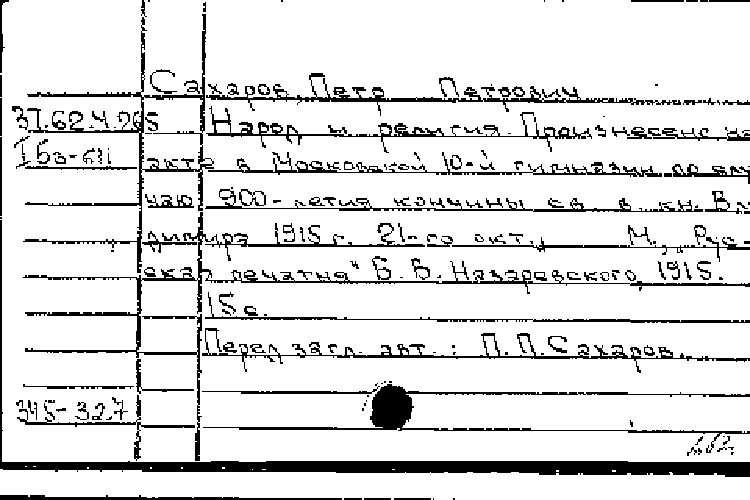 Сахаров, Петр Петрович
37.62.4.265 Народ и религия. Произнесено на
I 63-611 акте в Московской 10-й гимназии по слу
чаю 900-летия кончины св. в. кн. Вла
димира 1915 г. 21-го окт. М., „Рус-
ская печатня" Б. В. Назаревского, 1915.
15 с.
Перед загл. авт.: П. П. Сахаров.
345-327